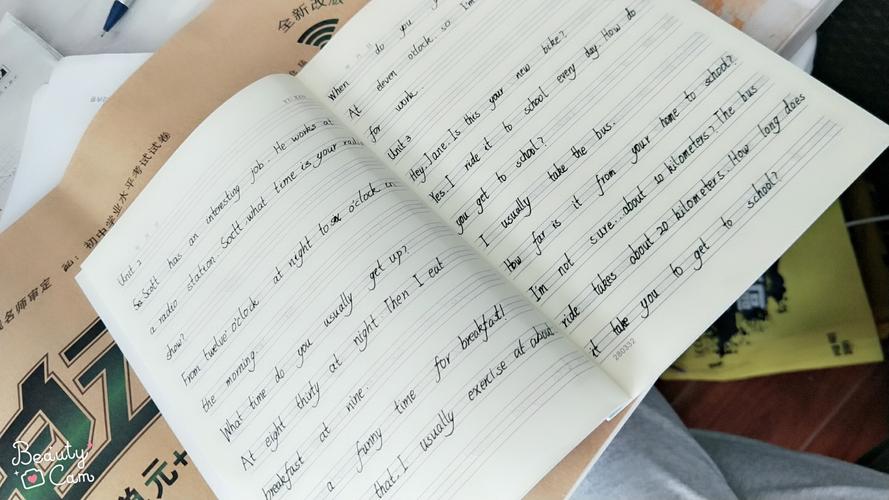 全新改版
初中学业水平考试试卷
名师审定
单元+
Unit 2
So Scott has an interesting job. He works at
a radio station. Soctt what time is your radio
show?
From twelve o'clock at night to six o'clock in
the morning.
What time do you usually get up?
At eight thirty at night. Then I eat
breakfast at nine.
a funny time for breakfast!
that. I usually exercise at about
When do you
At eleven o'clock. so I'm
for work.
Unit 3
Hey. Jane. Is this your new bike?
Yes. I ride it to school every day. How do
you get to school?
I usually take the bus.
How far is it from your home to school?
I'm not sure...about 10 kilometers? The bus
ride takes about 20 kilometers. How long does
it take you to get to school?
280332
Beauty
Cam